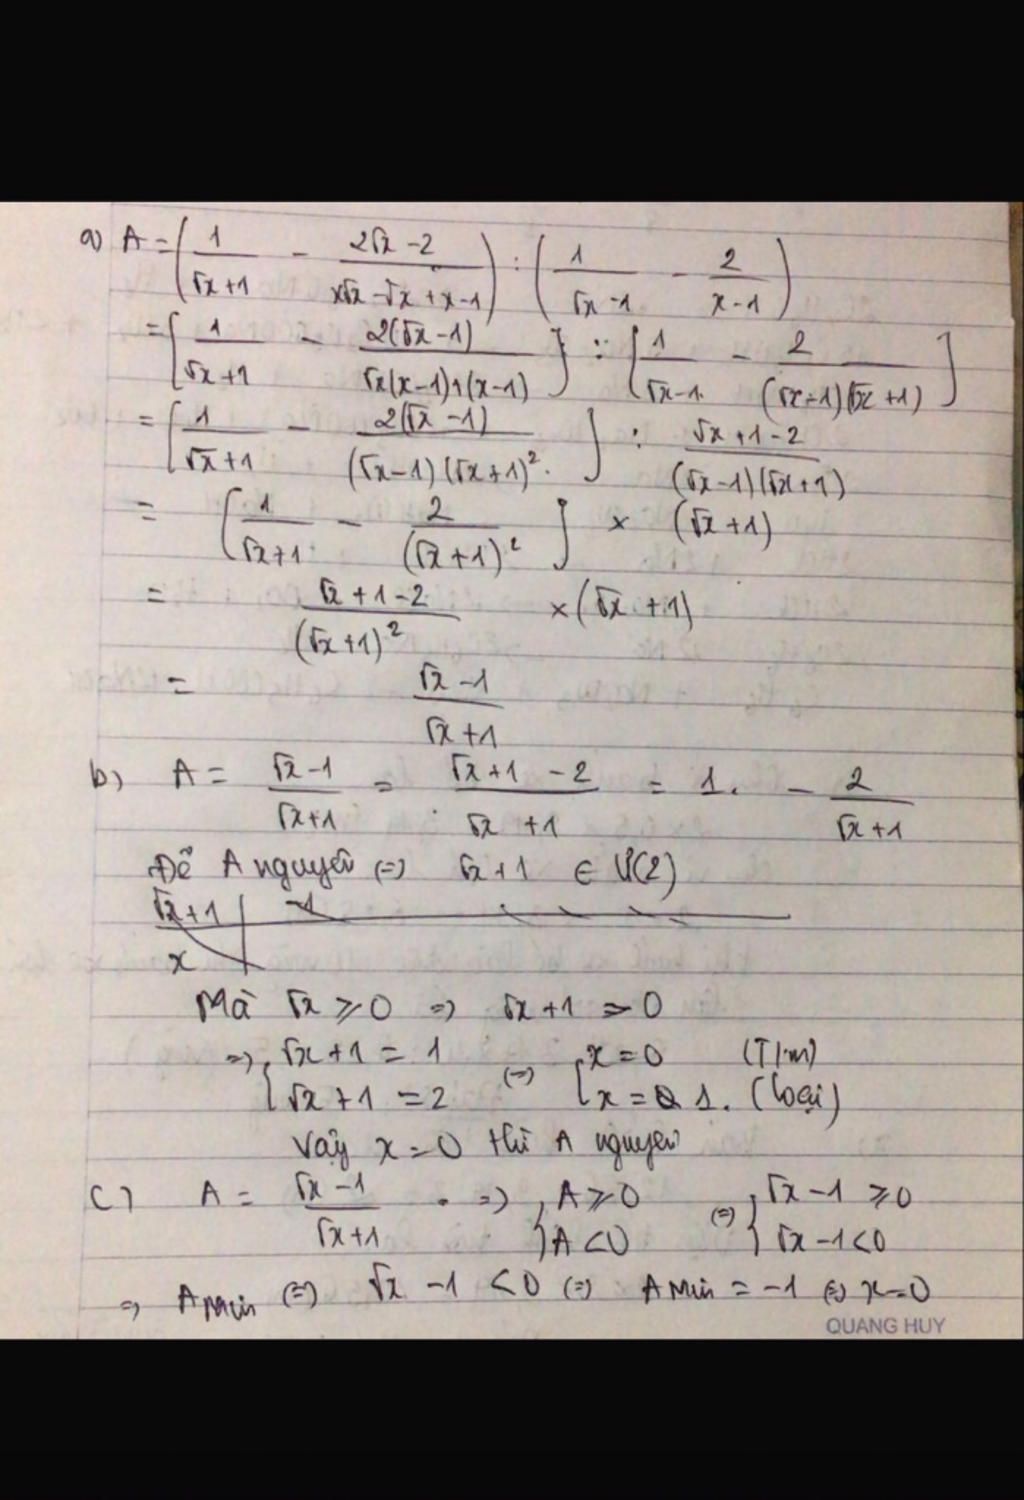 a) A = (1/(√x+1) - (2√x-2)/(x√x-√x+x-1)) : (1/(√x-1) - 2/(x-1))
= [1/(√x+1) - 2(√x-1)/(√x(x-1)+(x-1))] : [1/(√x-1) - 2/((√x-1)(√x+1))]
= [1/(√x+1) - 2(√x-1)/((√x-1)(√x+1)².)] : (√x+1-2)/((√x-1)(√x+1))
= [1/(√x+1) - 2/(√x+1)²] × (√x+1)
= (√x+1-2)/(√x+1)² × (√x+1)
= (√x-1)/(√x+1)
b) A = (√x-1)/(√x+1) = (√x+1-2)/(√x+1) = 1. - 2/(√x+1)
Để A nguyên (=) √x+1 ∈ Ư(2)
√x+1 | -1
x
Mà √x ⩾ 0 => √x+1 > 0
=> { √x+1 = 1 (=) { x = 0 (T/m)
{ √x+1 = 2 { x = 1. (loại)
Vậy x = 0 thì A nguyên
c) A = (√x-1)/(√x+1) . => { A ⩾ 0 (=) { √x-1 ⩾ 0
{ A < 0 { √x-1 < 0
=> A Min (=) √x-1 < 0 (=) A Min = -1 (=) x = 0
QUANG HUY